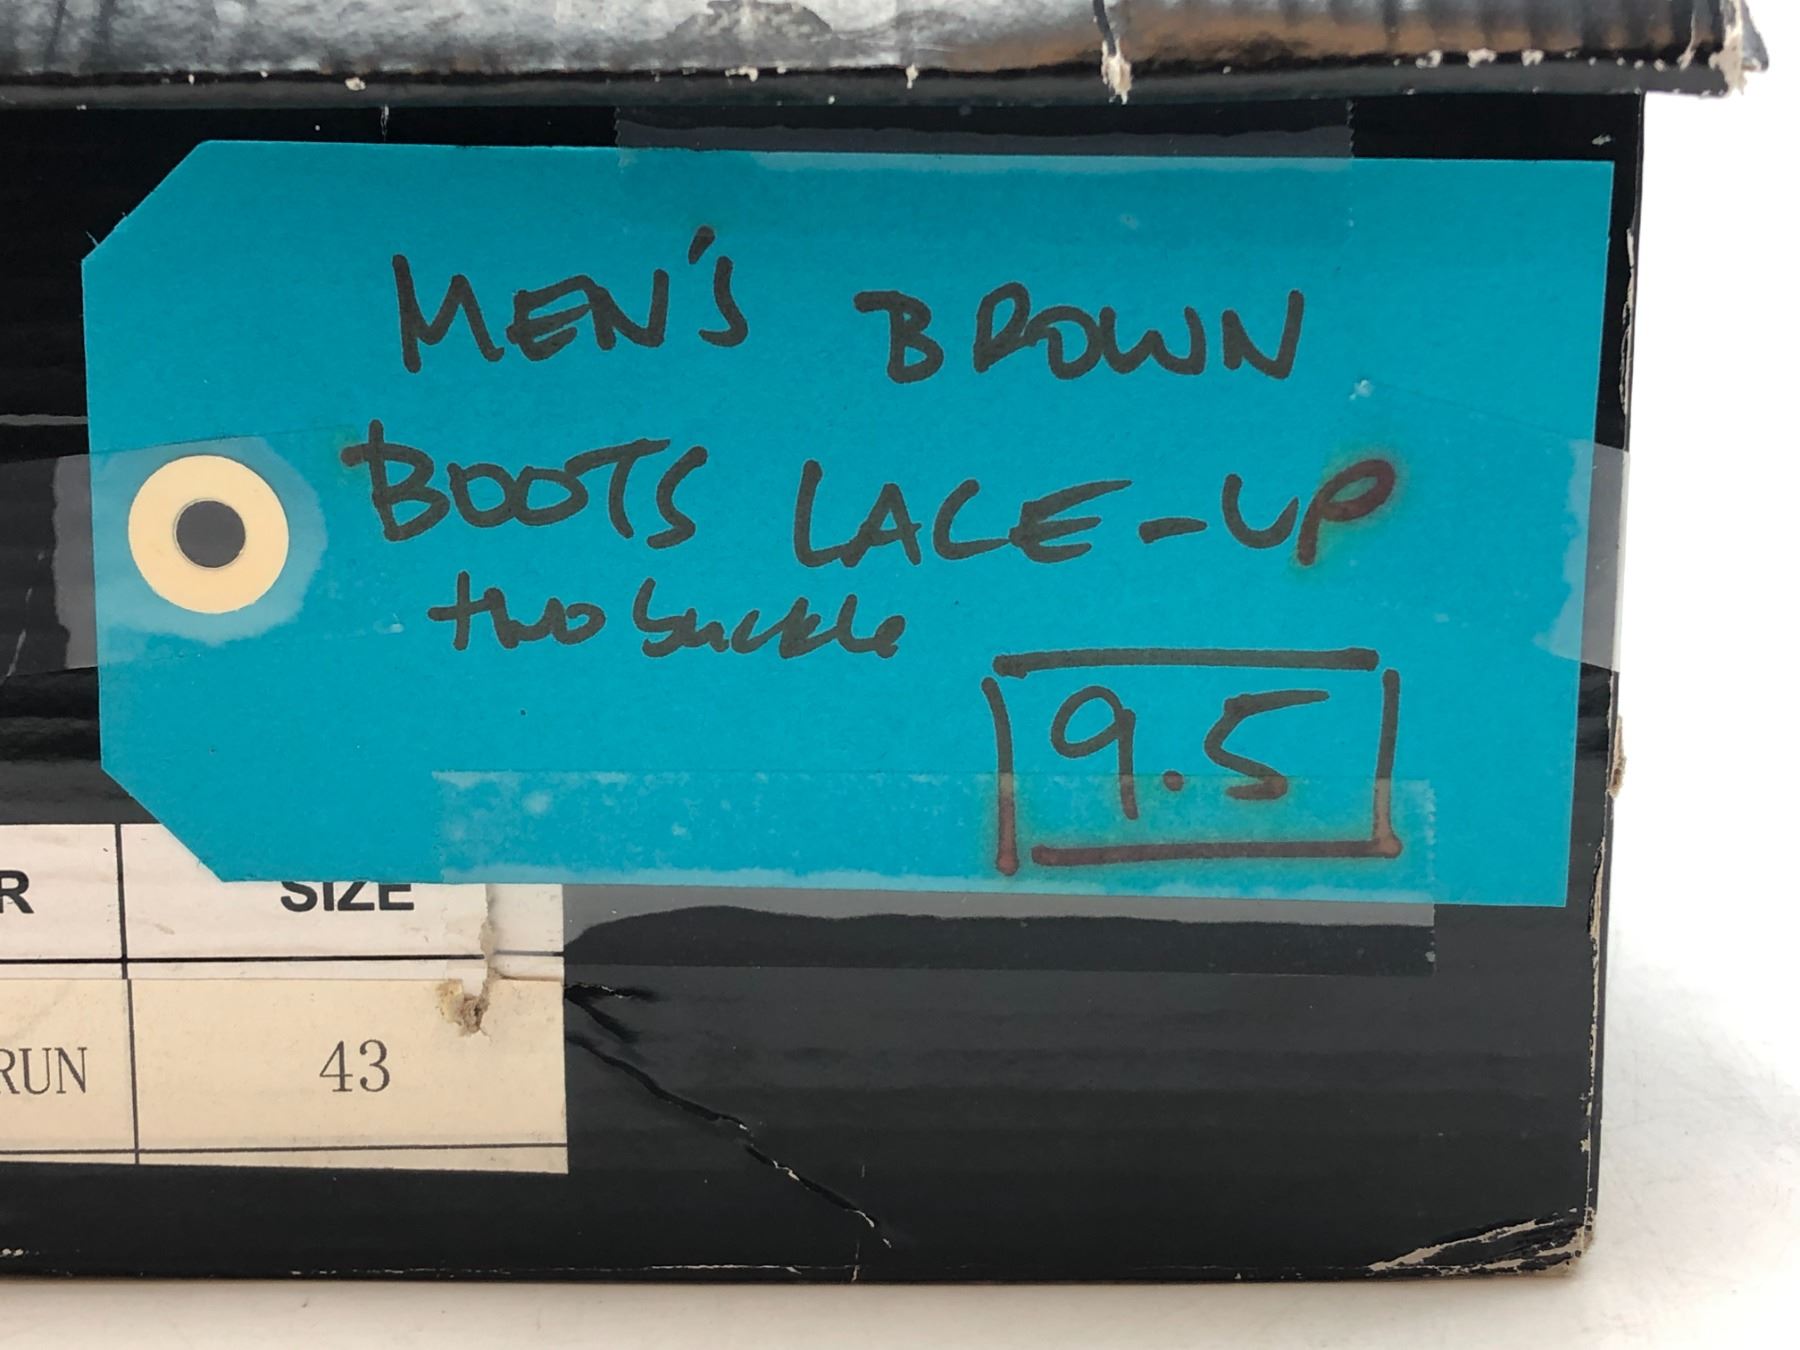 MEN'S BROWN
BOOTS LACE-UP
two buckle
9.5
R SIZE
RUN 43